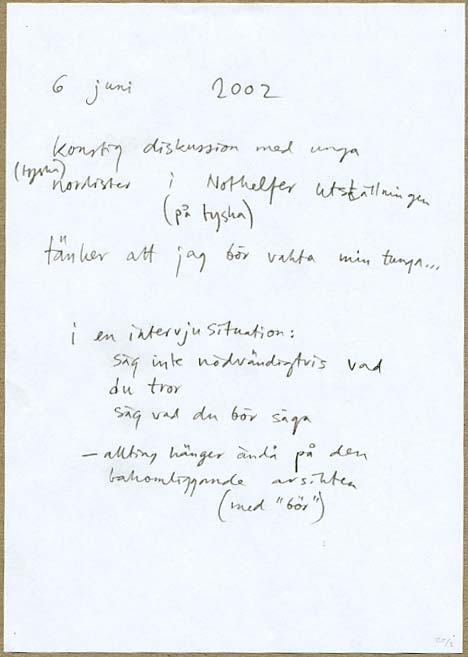 6 juni 2002
Konstig diskussion med unga
(tyska)
nordister i Nothelfer utställningen
(på tyska)
tänker att jag bör vakta min tunga...
i en intervjusituation:
säg inte nödvändigtvis vad
du tror
säg vad du bör säga
– allting hänger ändå på den
bakomliggande avsikten
(med "bör")